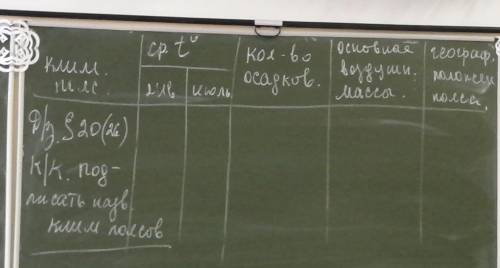 клим. пояс
ср t°
янв
июль
кол-во
осадков.
основная
воздушн.
массы.
географ.
положен
пояса.
Д/з. § 20(26)
К/К. под-
писать назв
клим поясов